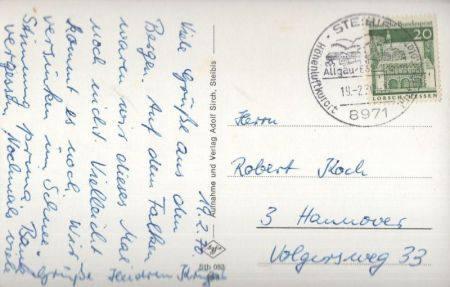 19.2.70
Viele Grüße aus den
Bergen. Auf dem Falken
waren wir dieses Mal
noch nicht. Vielleicht
kommt es noch. Wir
versinken im Schnee.
Stimmung prima,
vergessen. Nochmals viele
Grüße Heidrun
Aufnahme und Verlag Adolf Sirch, Steibis
Stb 053
STEIBIS
Höhenluftkurort
Allgäu
19.-2.70
8971
Deutsche Bundespost
20
LORSCH/HESSEN
Herrn
Robert Koch
3 Hannover
Volgersweg 33